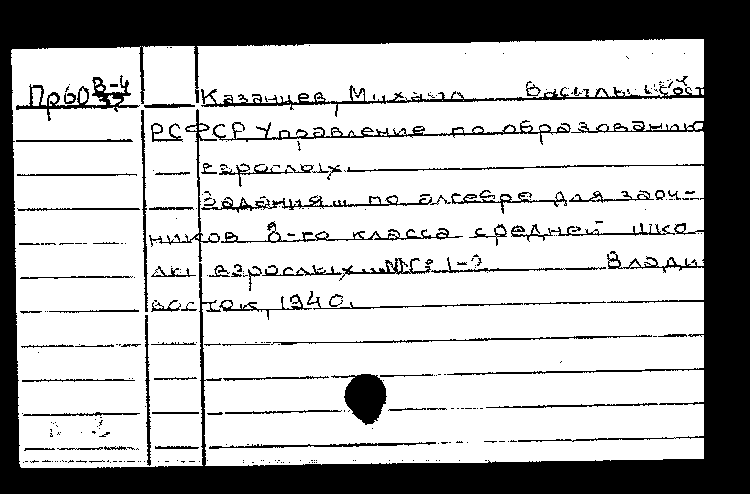 Пр60 В-4/33 Казанцев, Михаил Васильевич Сост
РСФСР Управление по образованию
взрослых.
Задания... по алгебре для заоч-
ников 8-го класса средней шко-
лы взрослых... №№ 1-2 Влади
восток, 1940.